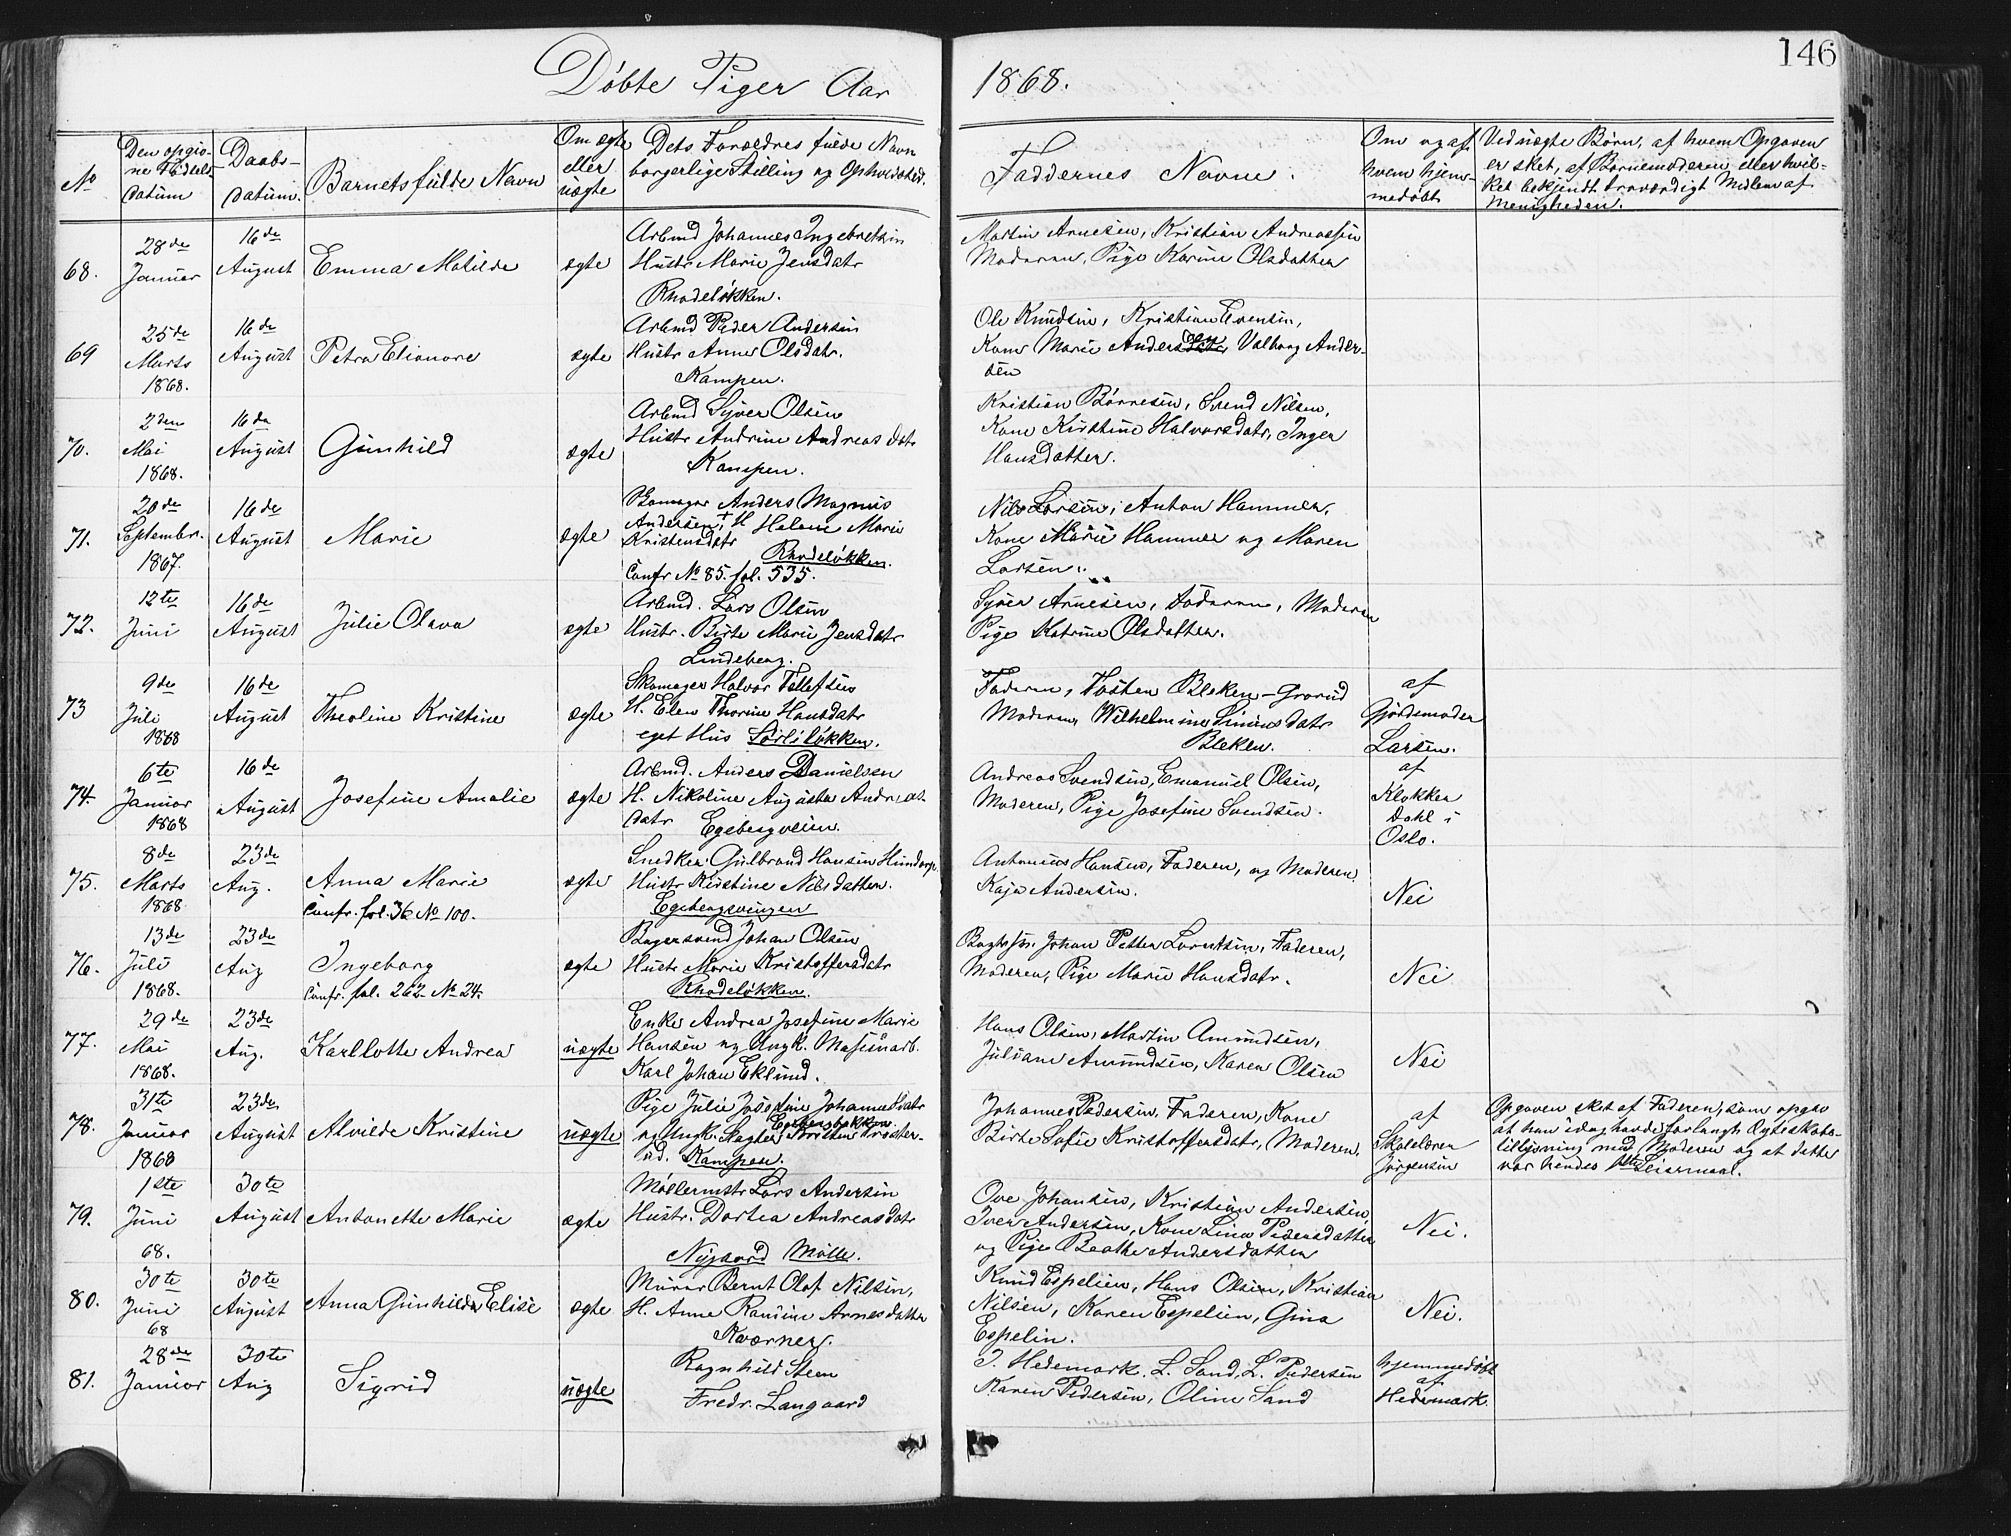 Døbte Piger Aar 1868.
146
No
Den opgivne Fødselsdatum
Daabsdatum.
Barnets fulde Navn
Om ægte eller uægte
Dets Forældres fulde Navn borgerlige Stilling og Opholdsted.
Faddernes Navne.
Om og af hvem hjemmedøbt
Ved uægte Børn, af hvem Opgaven er sket, af Barnemoderen eller hvilket bekjendt troværdigt Medlem af Menigheden.
68.
28de Januar
16de August
Emma Matilde
ægte
Arbmd Johannes Ingebretsen
Hustr Marie Jensdatr
Rhodeløkken.
Martin Arnesen, Kristian Andreassen
Moderen, Pige Karine Olsdatter
69
25de Marts 1868.
16de August
Petra Elionore
ægte
Arbmd Peder Andersen
Hustr Anne Olsdatr.
Kampen.
Ole Knudsen, Kristian Evensen,
Kone Marie Andersen Valborg Ander-
sen
70.
2den Mai 1868.
16de August
Gunhild
ægte
Arbmd Syver Olsen
Hustr Andrine Andreasdatr
Kampen.
Kristian Børresen, Svend Nilsen,
Kone Kirstine Halvorsdatr, Inger
Hansdatter.
71.
20de Septembr. 1867.
16de August
Marie
ægte
Skomager Anders Magnus
Andersen, H Helene Marie
Kristensdatr
Rhodeløkken.
Confr No 85. fol. 535.
Nils Larsen, Anton Hammer,
Kone Marie Hammer og Maren
Larsen.
72.
12te Juni
16de August
Julie Olava
ægte
Arbmd. Lars Olsen
Hustr. Birte Marie Jensdatr
Lindeberg.
Syver Arnesen, Faderen, Moderen
Pige Katrine Olsdatter.
73
9de Juli 1868
16de August
Theoline Kristine
ægte
Skomager Halvor Tollefsen
H. Elen Thorine Hansdatr
eget Hus Sørliløkken.
Faderen, Torsten Bleken-Grorud
Moderen, Wilhelmine Simensdatr
Bleken.
af
Gjordemoder
Larsen.
74.
6te Januar 1868
16de August
Josefine Amalie
ægte
Arbmd. Anders Danielsen
H. Nikoline Augusta Andreas-
datr Egebergveien.
Andreas Svendsen, Emanuel Olsen,
Moderen, Pige Josefine Svendsen.
af
Klokker
Dahl i
Oslo.
75.
8de Marts 1868
23de Aug.
Anna Marie
Confr. fol. 36 No 100.
ægte
Snedker Gulbrand Hansen Hundorp
Hustr Kirstine Nilsdatter.
Egebergsvingen
Antonius Hansen, Faderen, og Moderen
Kaja Andersen.
Nei
76.
13de Juli 1868.
23de Aug
Ingeborg
Confr. fol. 262 No 24.
ægte
Bagersvend Johan Olsen
Hustr Marie Kristoffersdatr
Rhodeløkken.
Johan Petter Larntsen, Faderen,
Moderen, Pige Marie Hansdatr.
Nei
77.
29de Mai 1868.
23de Aug.
Karllotte Andrea
uægte
Enke Andrea Josefine Marie
Hansen og Ungk. Masinarb.
Karl Johan Eklund.
Hans Olsen, Martin Amundsen,
Juliane Amundsen, Karen Olsen
Nei
78.
31te Januar 1868
23de August
Alvilde Kristine
uægte
Pige Julie Josefine Johannesdatr
og Ungk. Slagter
Kampen.
Johannes Pedersen, Faderen, Kone
Birte Sofie Kristoffersdatr, Moderen.
af
Skolelærer
Jørgensen
Opgaven sket af Faderen, som opgav
at han idag havde forlangt Ægteskabs-
tillysning med Moderen og at dette
var hendes 1ste Leiermaal.
79.
1ste Juni 68.
30te August
Antonette Marie
ægte
Møllermstr Lars Andersen
Hustr. Dortea Andreasdatr
Nygaard Mølle.
Ove Johansen, Kristian Andersen,
Iver Andersen, Kone Lina Pedersdatter
og Pige Beathe Andersdatter
Nei.
80.
30te Juni 68
30te August
Anna Gunhilda Elise
ægte
Murer Bernt Olof Nilsen,
H. Anne Randine Arnesdatter
Kværner.
Knud Espelien, Hans Olsen, Kristian
Nilsen, Karen Espelien, Gina
Espelin.
Nei.
81.
28de Januar
30te Aug
Sigrid
uægte
Ragnhild Steen
Fredr. Langaard
J. Hedemark. L. Sand, L. Pedersen
Karen Pedersen, Oline Sand
hjemmedøbt
af
Hedemark.